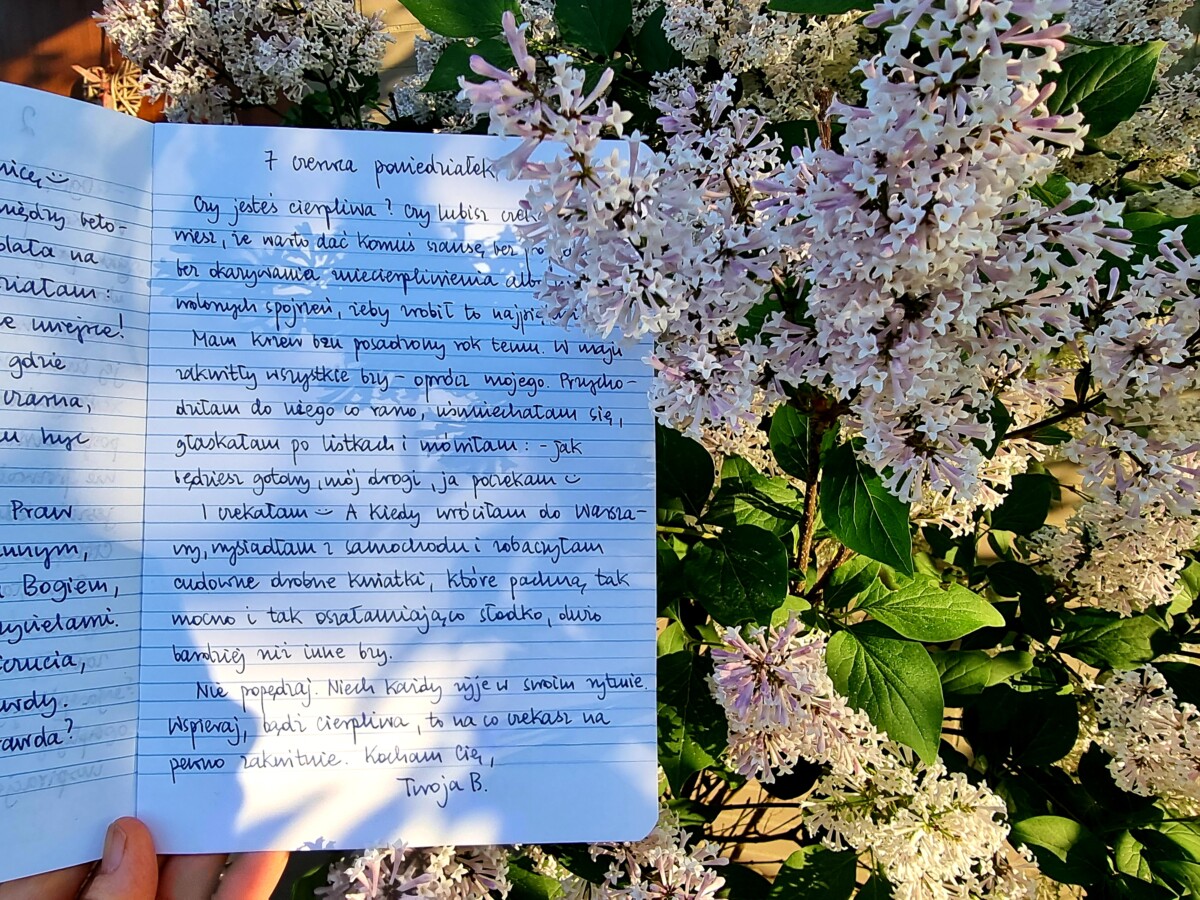 nicę
między beto-
olała na
iałam:
e miejsce!
gdzie
czarna,
być
Praw
nnym,
Bogiem,
ycielami.
crucia,
wdy.
rawda?
7 czerwca poniedziałek,
Czy jesteś cierpliwa? Czy lubisz czek
miesz, że warto dać komuś szansę bez
bez okazywania zniecierpliwienia albo
wolonych spojrzeń, żeby zrobił to
Mam krzew bzu posadzony rok temu. W maju
zakwitły wszystkie bzy - oprócz mojego. Przycho-
dziłam do niego co rano, uśmiechałam się,
głaskałam po listkach i mówiłam: - jak
będziesz gotowy, mój drogi, ja poczekam
I czekałam A kiedy wróciłam do Warsza-
wy, wysiadłam z samochodu i zobaczyłam
cudowne drobne kwiatki, które pachną tak
mocno i tak oszałamiająco słodko, dużo
bardziej niż inne bzy.
Nie popędzaj. Niech każdy żyje w swoim rytmie.
Wspieraj, bądź cierpliwa, to na co czekasz na
pewno zakwitnie. Kocham Cię,
Twoja B.